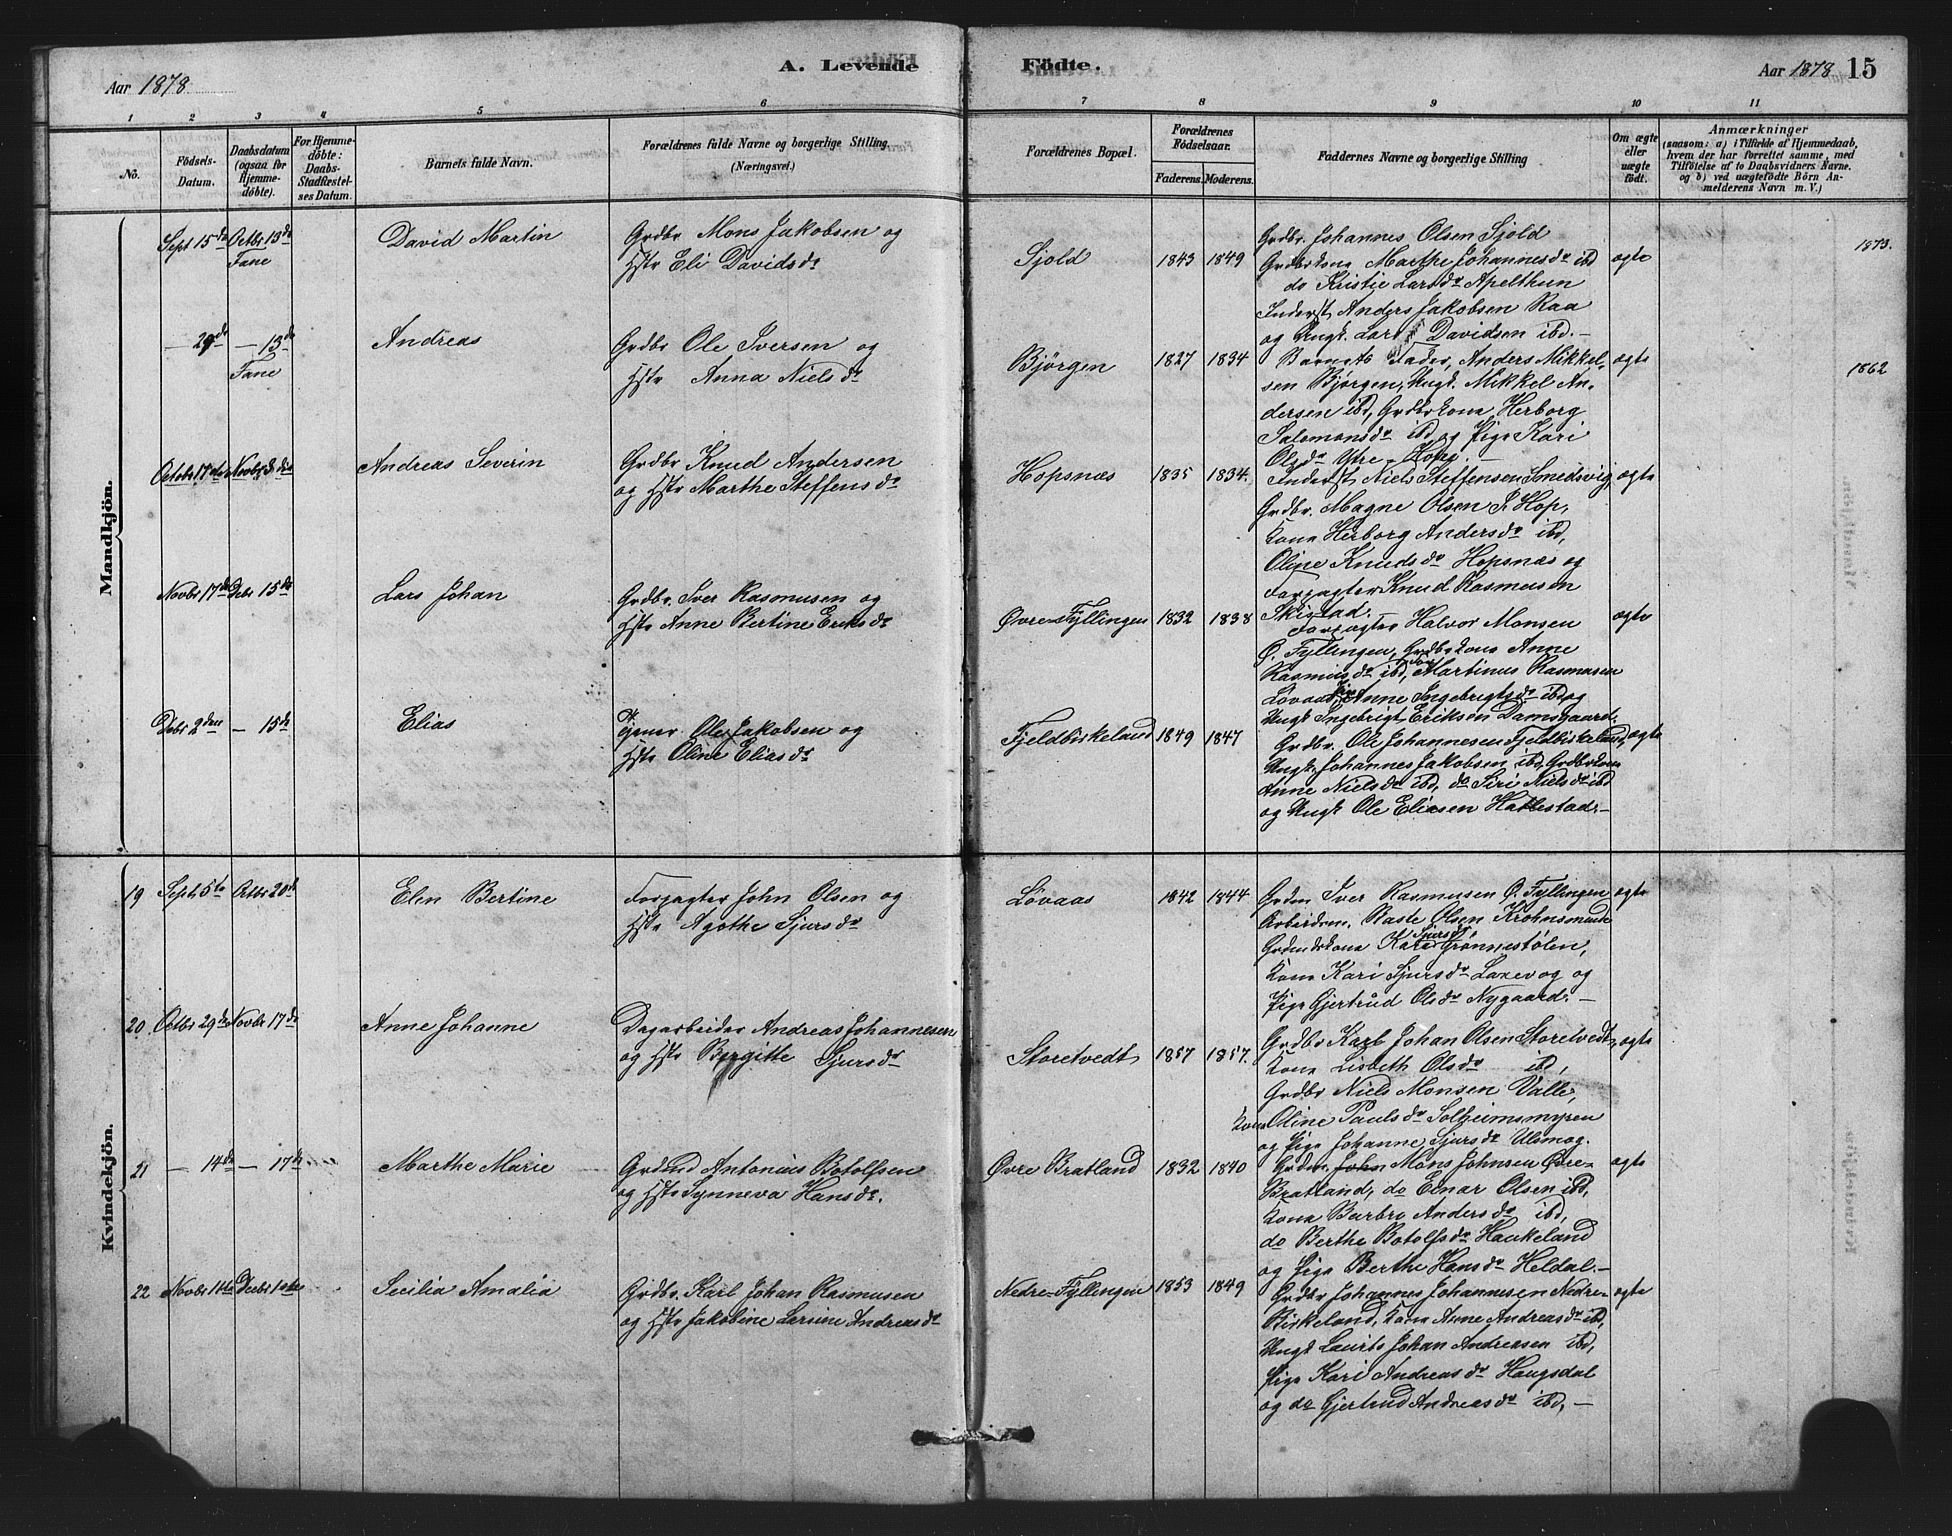 Aar 1878.
A. Levende
Födte.
Aar 1878
15
1 2 3 4 5 6 7 8 9 10 11
No.
Födsels-
Datum.
Daabsdatum
(ogsaa for
Hjemme-
döbte).
For Hjemme-
döbte:
Daabs-
Stadfæstel-
ses Datum.
Barnets fulde Navn.
Forældrenes fulde Navne og borgerlige Stilling
(Næringsvei.)
Forældrenes Bopæl.
Forældrenes
Födselsaar.
Faderens. Moderens.
Faddernes Navne og borgerlige Stilling
Om ægte
eller
uægte
födt.
Anmærkninger
(saasom: a) i Tilfælde af Hjemmedaab,
hvem der har forrettet samme, med
Tilföielse af to Daabsvidners Navne.
og b) ved uægtefödte Börn An-
melderens Navn m. V.)
Mandkjön.
Sept 15de Octbr 13de
Fane
David Martin
Grdbr Mons Jakobsen og
Hstr Eli Davidsdr
Sjold
1843 1849
Grdbr. Johannes Olsen Sjold
Grdbrkona Marthe Johannesdr ibd
do Kristie Larsdr Apelthun
Inderst Anders Jakobsen Raa
og Ungk. Lars Davidsen ibd.—
ægte
1873.
— 29de — 13de
Fane
Andreas
Grdbr Ole Iversen og
Hstr Anna Nielsdr
Bjørgen
1827 1834
Barnets Fader, Anders Mikkel-
sen Bjørgen, Ungk. Mikkel An-
dersen ibd, Grdbrkona Herborg
Salomonsdr ibd og Pige Kari
Olsdr Ytre-Hop.—
ægte
1862
Octobr 17de Novbr 3die
Andreas Severin
Grdbr Knud Andersen
og Hstr Marthe Steffensdr
Hopsnæs
1835 1834.
Inderst Niels Steffensen Smedsvig,
Grdbr. Magne Olsen I. Hop,
Kona Herborg Andersdr ibd,
Oline Knudsdr Hopsnæs og
Forpagter Knud Rasmusen
Skistad.
ægte
Novbr 17de Debr 15de
Lars Johan
Grdbr. Iver Rasmusen og
Hstr Anne Bertine Eriksdr
Øvre-Fyllingen
1832 1838
Forpagter Halvor Monsen
Ø. Fyllingen, Grdbrkona Anne
Rasmusdr ibd, Martinus Rasmusen
Løvaas, Anne Ingebrigtsdr ibd og
Ungk Ingebrigt Eriksen Damsgaard.
ægte
Debr 2den — 15de
Elias
Tjener Ole Jakobsen og
Hstr Oline Eliasdr
Fjeldbirkeland
1849 1847
Grdbr. Ole Johannesen Fjeldbirkeland,
Ungk. Johannes Jakobsen ibd, Grdbrkona
Anne Nielsdr ibd, do Siri Nielsdr ibd
og Ungk Ole Eliasen Hattestad.—
ægte
Kvindekjön.
19 Sept 5te Octbr 20de
Elen Bertine
Forpagter John Olsen og
Hstr Agothe Sjursdr
Løvaas
1842 1844
Grdm Iver Rasmusen Ø. Fyllingen
Arbeidsm. Raste Olsen Krohnsminde
Grdmdskona Kari Sjursdr Grønnestølen,
Kona Kari Sjursdr Laxevog og
Pige Gjertrud Olsdr Nygaard.—
ægte
20 Octbr 29de Novbr 17de
Anne Johanne
Dagarbeider Andreas Johannesen
og Hstr Bergitte Sjursdr
Storetvedt
1857 1857.
Grdbr Karl Johan Olsen Storetvedt,
Kona Lisbeth Olsdr ibd,
Grdbr Niels Monsen Valle,
Kona Oline Paulsdr Solheimsmyren
og Pige Johanne Sjursdr Ulsmog.
ægte
21 — 14de — 17de
Marthe Marie
Grdmd Antonius Botolfsen
og Hstr Synneva Hansdr.
Øvre Bratland
1832 1840
Grdm. John Mons Johnsen Øvre-
Bratland, do Einar Olsen ibd,
Kona Barbro Andersdr ibd,
do Berthe Botolfsdr Haukeland
og Pige Berthe Hansdr Heldal.—
ægte
22 Novbr 11te Decbr 10de
Secilia Amalia
Grdbr. Karl Johan Rasmusen
og Hstr Jakobine Larsine Andreasdr
Nedre-Fyllingen
1853 1849
Grdbr Johannes Johannesen Nedre-
Birkeland, Kona Anne Andreasdr ibd,
Ungk Laurits Johan Andreasen ibd,
Pige Kari Andreasdr Haugsdal
og do Gjertrud Andreasdr ibd,—
ægte